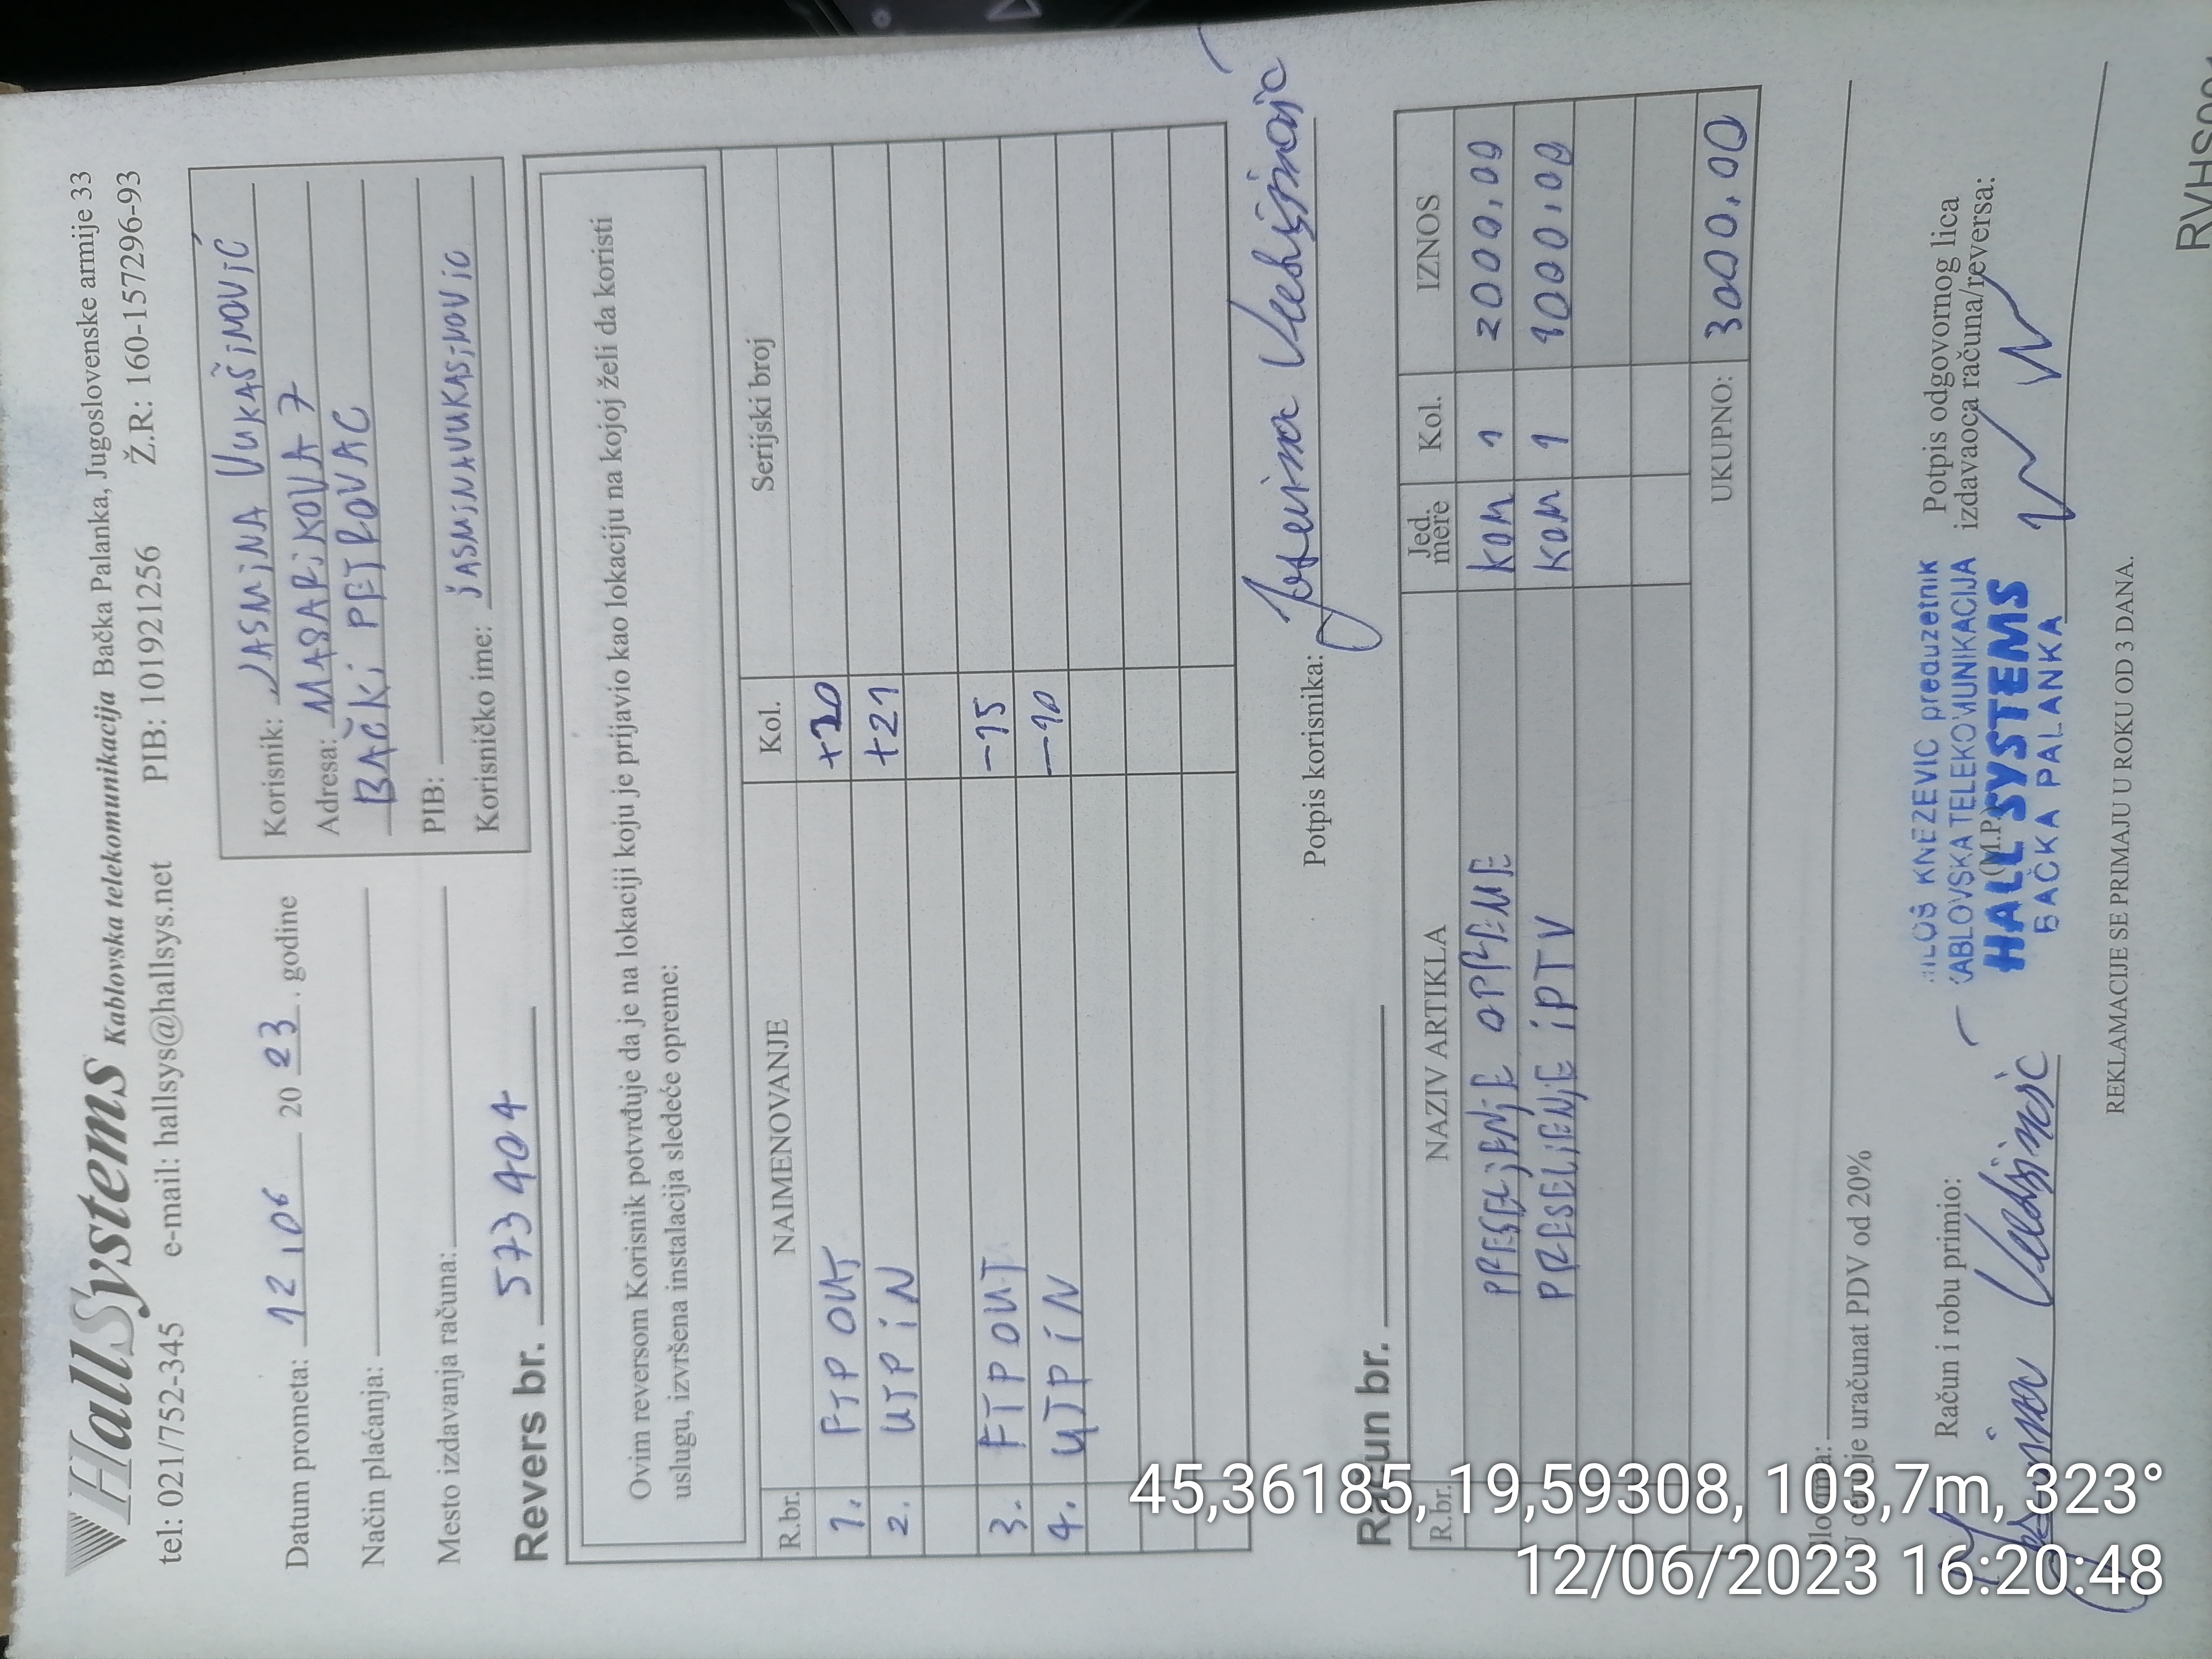 HallSystems Kablovska telekomunikacija Bačka Palanka, Jugoslovenske armije 33
tel: 021/752-345 e-mail: hallsys@hallsys.net PIB: 101921256 Ž.R: 160-157296-93
Datum prometa: 12 i 06 20 23. godine
Način plaćanja:
Mesto izdavanja računa:
Korisnik: JASMiNA VUKAŠiNOViĆ
Adresa: MASARiKOVA 7
BAČKi PETROVAC
PIB:
Korisničko ime: jASMiNAVUKASiNOViC
Revers br. 573404
Ovim reversom Korisnik potvrđuje da je na lokaciji koju je prijavio kao lokaciju na kojoj želi da koristi
uslugu, izvršena instalacija sledeće opreme:
R.br. NAIMENOVANJE Kol. Serijski broj
1. FTP OUT +20
2. UTP iN +21
3. FTP OUT -15
4. UTP iN -10
Potpis korisnika: Jasmina Vukašinović
Račun br.
R.br. NAZIV ARTIKLA Jed. mere Kol. IZNOS
PRESELjENjE OPREME KOM 1 2000,00
PRESELjENjE iPTV KOM 1 1000,00
UKUPNO: 3000,00
Slovima:
U cenu je uračunat PDV od 20%
Račun i robu primio:
Jasmina Vukašinović
MILOŠ KNEZEVIC preduzetnik
KABLOVSKA TELEKOMUNIKACIJA
HALL SYSTEMS
BAČKA PALANKA
(M.P)
Potpis odgovornog lica
izdavaoca računa/reversa:
REKLAMACIJE SE PRIMAJU U ROKU OD 3 DANA.
45,36185, 19,59308, 103,7m, 323°
12/06/2023 16:20:48